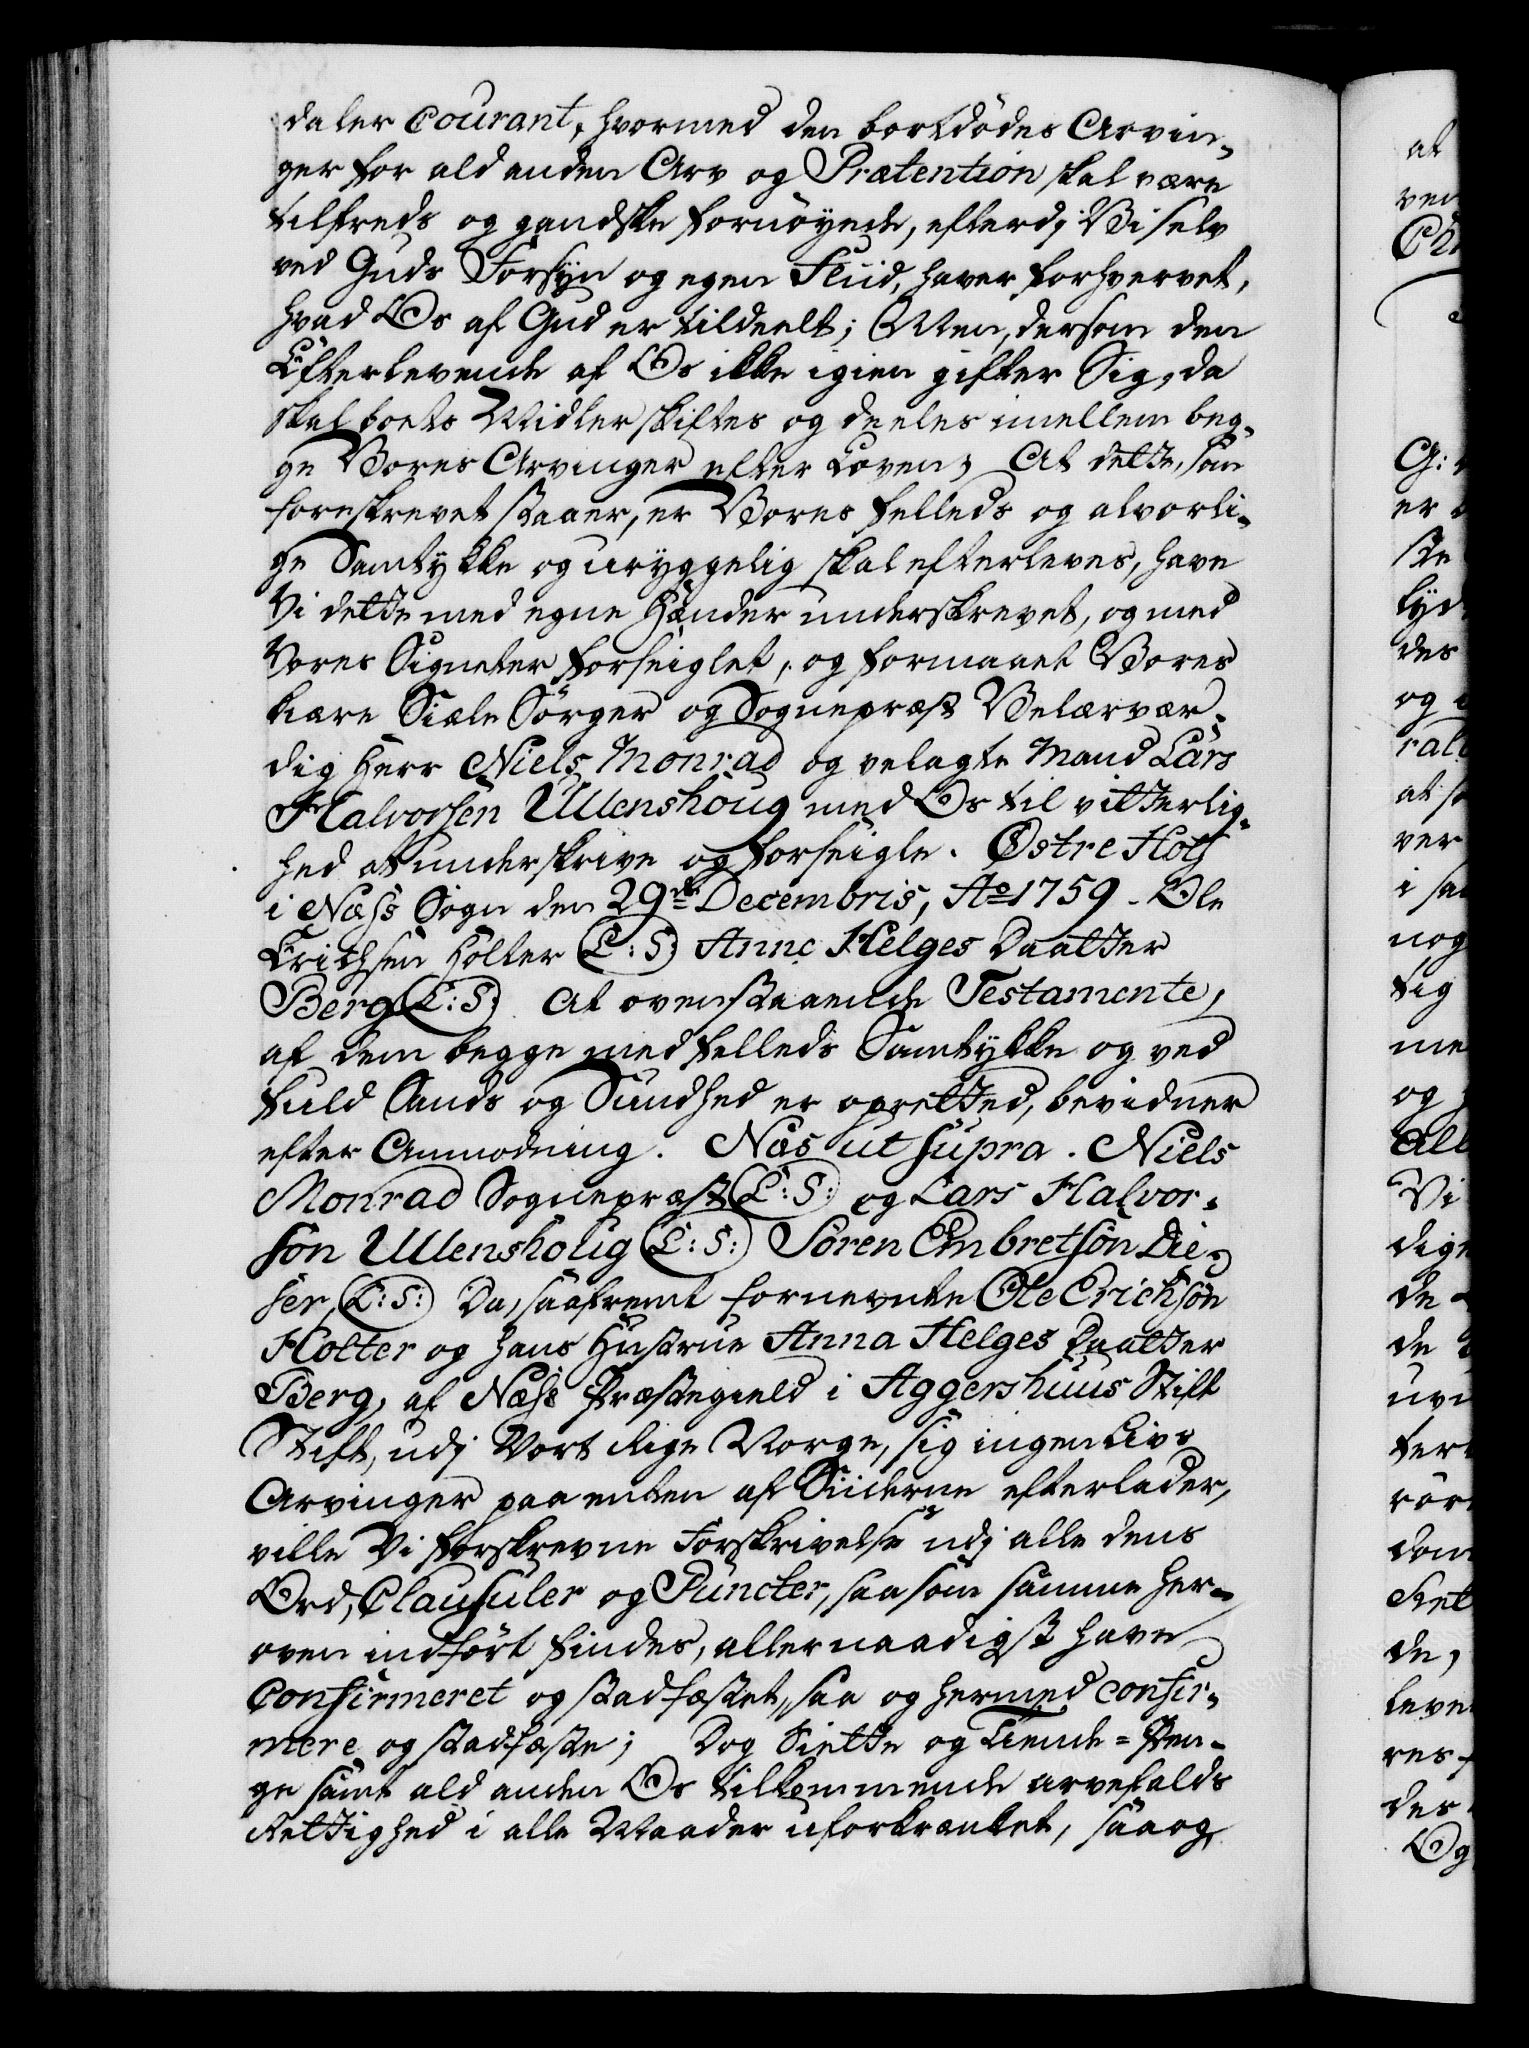 daler Courant, hvormed den bortdödes Arvin,
ger for ald anden Arv og Prætention skal være
tilfreds og gandske fornöyede, efterdj Vi selv
ved Guds Forsÿn og egen Fliid, haver forhvervet,
hvad Os af Gud er tildeelt; Men, dersom den
Efterlevende af Os ikke igien gifter Sig, da
skal boets Midler skiftes og deeles imellem beg,
ge Vores Arvinger efter Loven; At dette, som
foreskrevet staaer, er Vores felleds og alvorli,
ge Samtykke og uryggelig skal efterleves, have
Vi dette med egne Hænder underskrevet, og med
Vores Signeter forseiglet, og formaaet Vores
kiære Siæle Sörger og Sognepræst Velærvær,
dig Herr Niels Monrad og velagte Mand Lars
Halvorsen Ullenshoug med Os til vitterlig,
hed at underskrive og forseigle. Østre Holt
i Næss Sogn den 29de Decembris, Ao 1759. Ole
Erichsen Holter (L:S:) Anne Helges Daatter
Berg (L:S:) At ovenstaaende Testamente,
af dem begge med felleds Samtykke og ved
fuld Sands og Sundhed er oprettted, bevidner
efter Anmodning. Næs ut supra. Niels
Monrad Sognepræst (L:S:) og Lars Halvor,
sön Ullenshoug (L:S:) Sören Embretsön Die,
ser (L:S:) Da, saafremt fornevnte Ole Erichsön
Holter og hans Hustrue Anna Helges Daatter
Berg, af Næss Præstegield i Aggershuus Stift
Stift, udj Vort Rige Norge, sig ingen Livs
Arvinger paa enten af Siiderne efterlader,
ville Vi forskrevne Forskrivelse udj alle dens
Ord, Clausuler og Puncter, saa som samme her,
oven indfört findes, allernaadigst have
Confirmeret og stadfæstet, saa og hermed confir,
mere og stadfæste; Dog Siette og Tiende-Pen,
ge samt ald anden Os tilkommende arvefalds
Rettighed i alle Maader uforkrænket, saa og